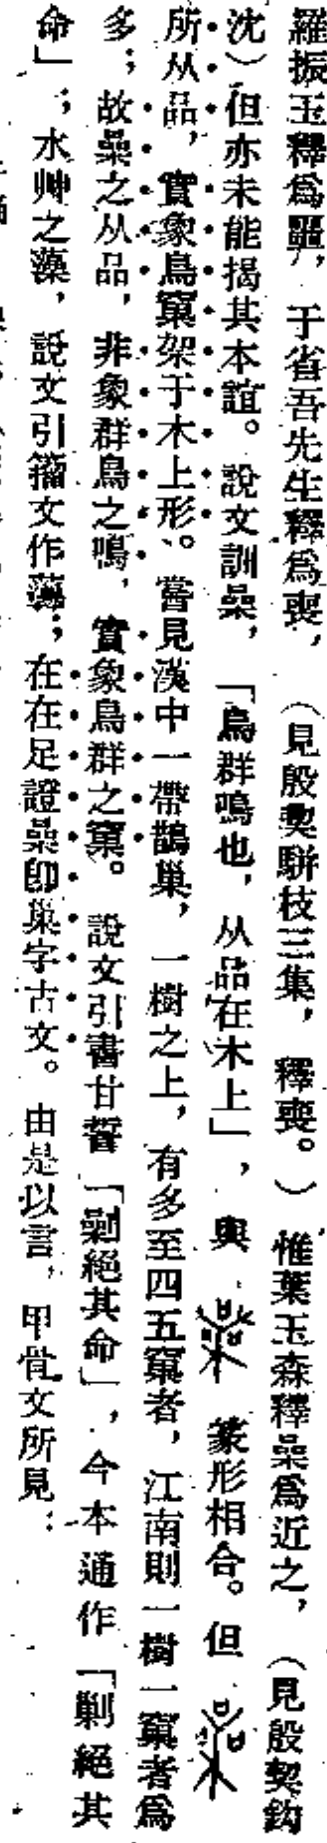 羅振玉釋爲噩，于省吾先生釋爲喪，（見殷契駢枝三集，釋喪。）惟葉玉森釋喿爲近之，（見殷契鈎
沈）但亦未能揭其本誼。說文訓喿，「鳥群鳴也，从品在木上」，與 篆形相合。但
所从品，實象鳥窠架于木上形。嘗見漢中一帶鵲巢，一樹之上，有多至四五窠者，江南則一樹一窠者爲
多；故喿之从品，非象群鳥之鳴，實象鳥群之窠。說文引書甘誓「剿絕其命」，今本通作「剿絕其
命」；水艸之藻，說文引籀文作；在在足證喿卽巢字古文。由是以言，甲骨文所見：